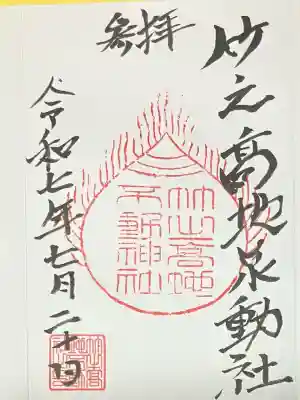 竹之高地不動社
参拝
竹之高地
不動神社
令和七年七月二十日